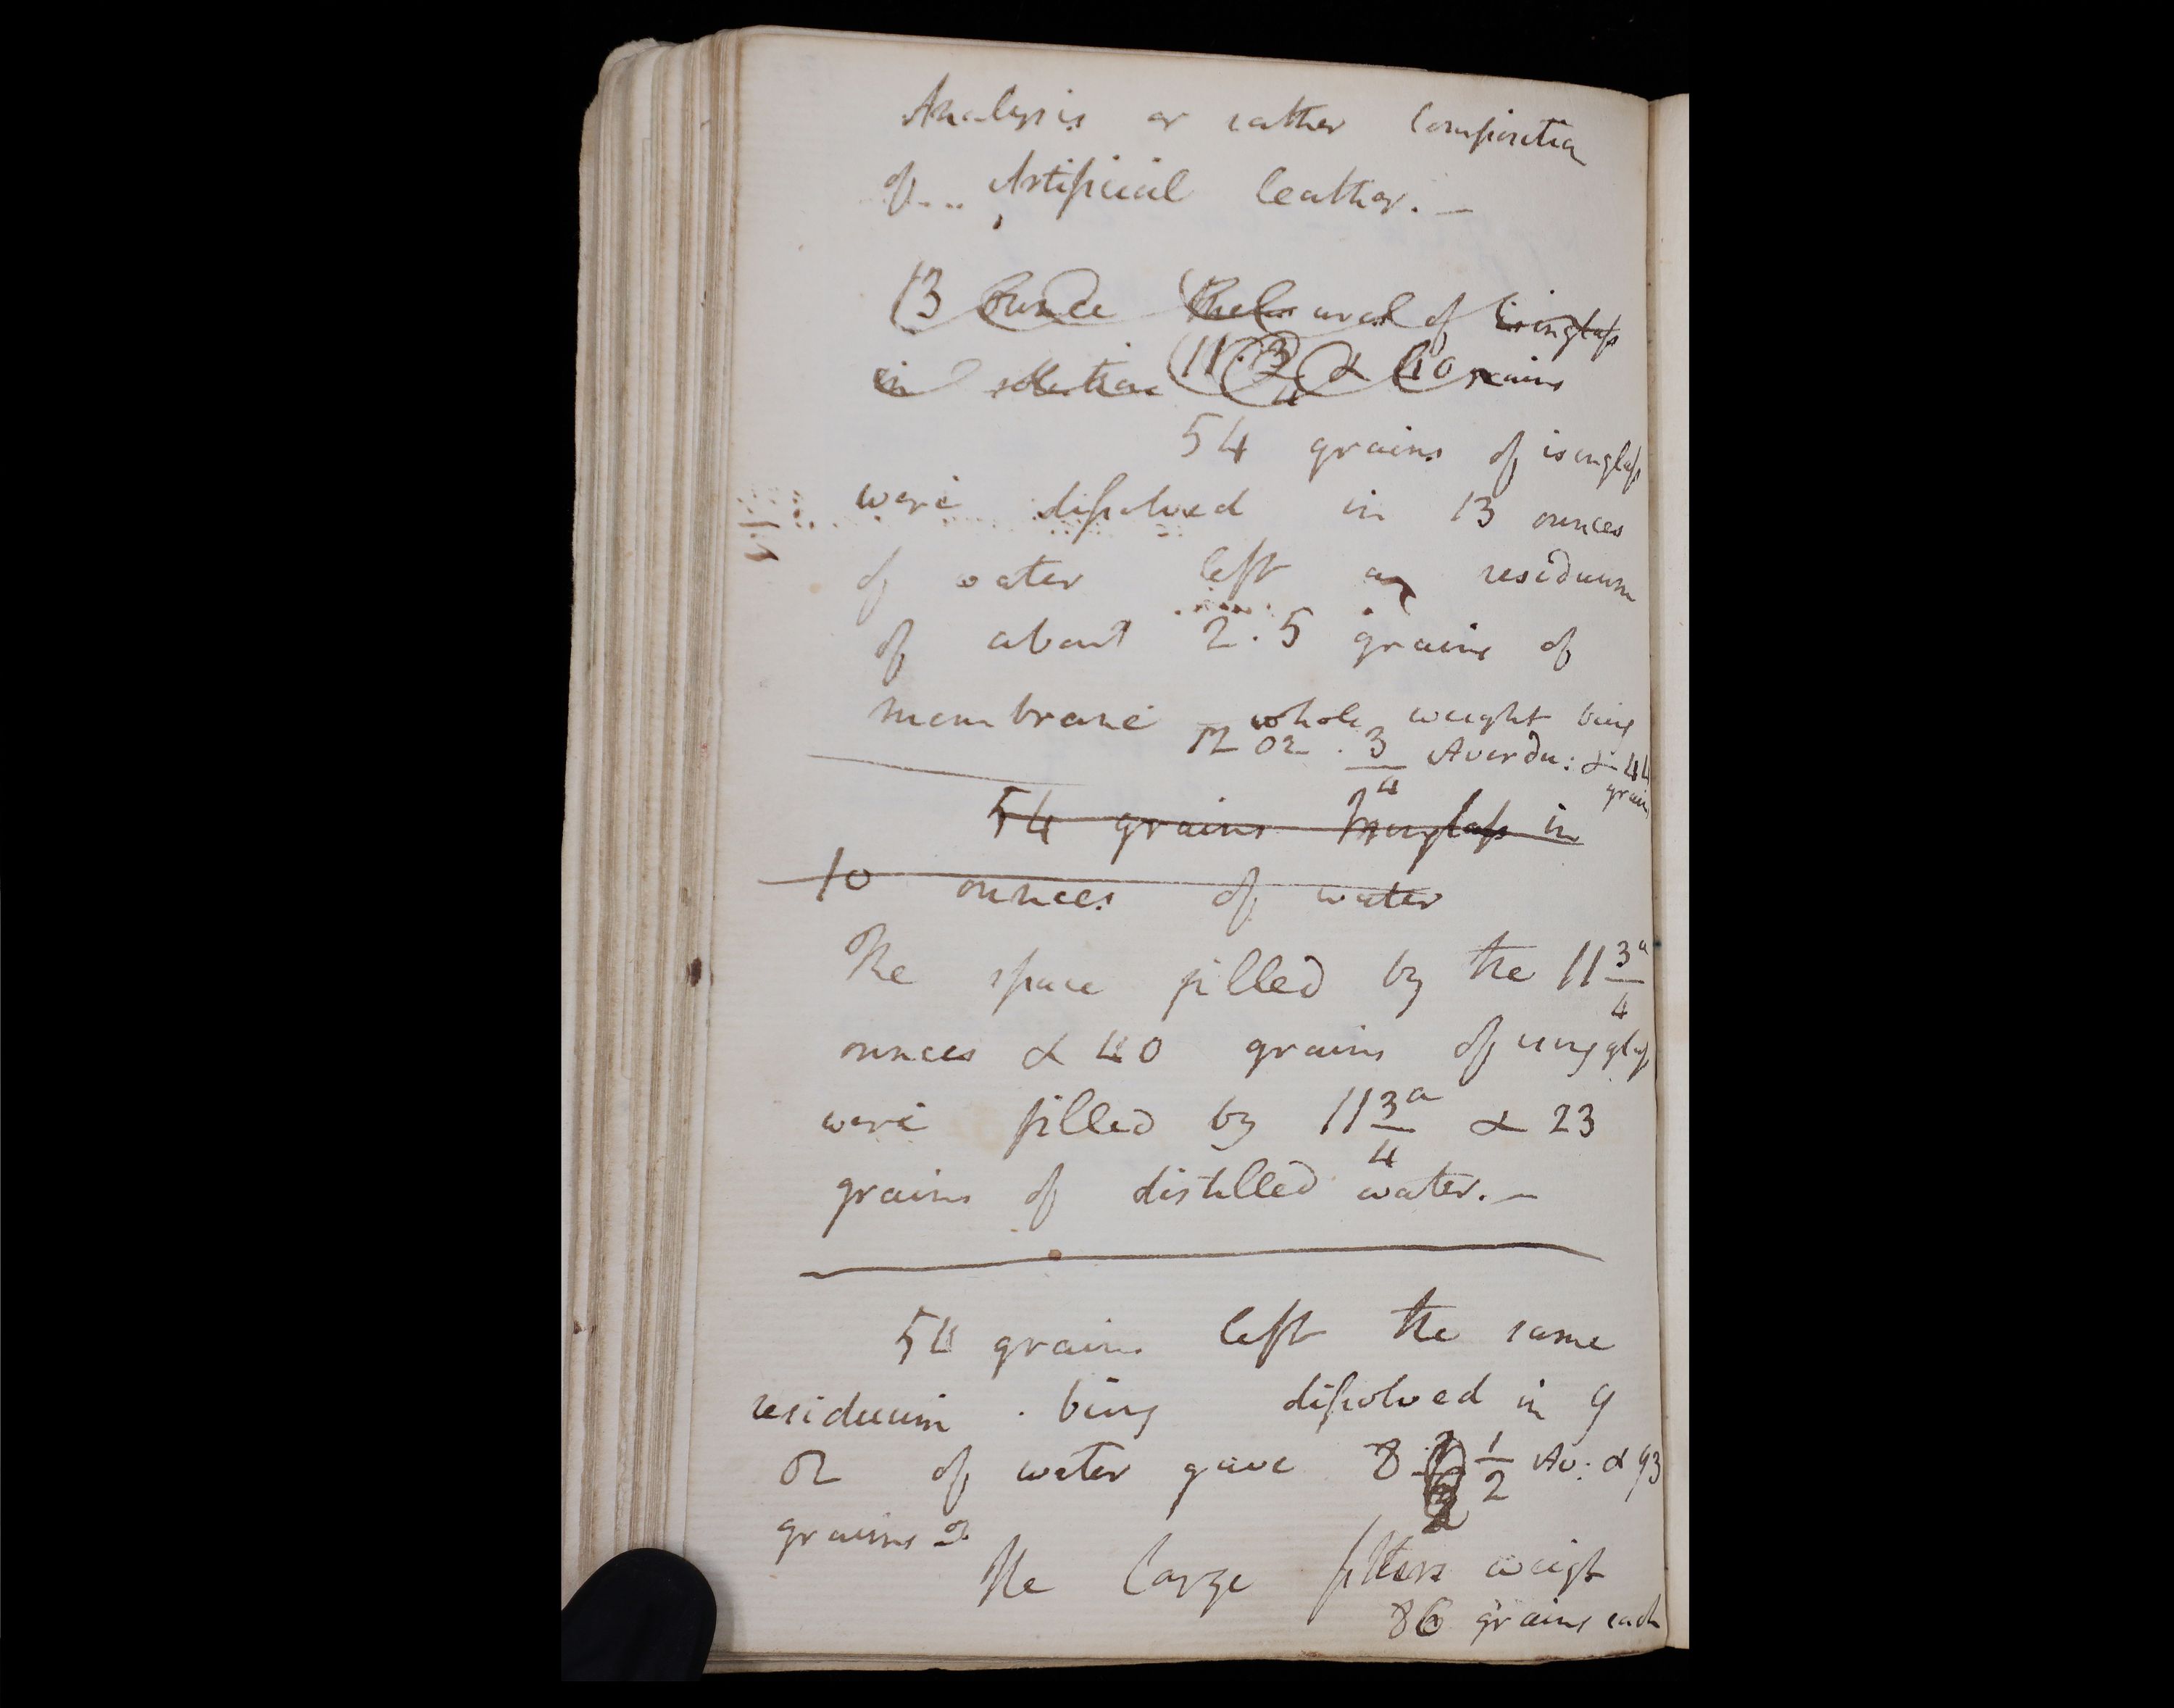 Analysis or rather Composition
of Artificial leather. —
13 Ounce of isinglass
in solution 11 3/4 & 40 grains
54 grains of isinglass
were dissolved in 13 ounces
of water left a residuum
of about 2.5 grains of
membrane whole weight being
12 oz. 3/4 Averdu: & 44
grain
54 grains Isinglass in
10 ounces of water
The space filled by the 11 3/4 a
ounces & 40 grains of isinglass
were filled by 11 3/4 a & 23
grains of distilled water. —
54 grains left the same
residuum . being dissolved in 9
oz of water gave 8 1/2 Av: & 93
grains
The large filters weigh
86 grains each